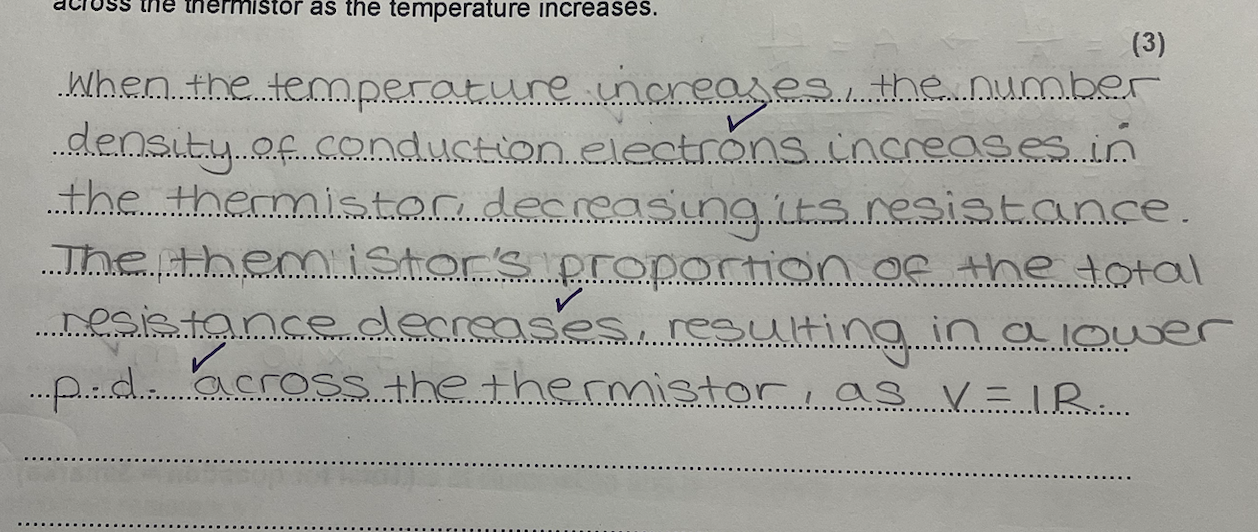 across the thermistor as the temperature increases.
(3)
When the temperature increases, the number
density of conduction electrons increases in
the thermistor, decreasing its resistance.
The themistor's proportion of the total
resistance decreases, resulting in a lower
p.d. across the thermistor, as V = IR.